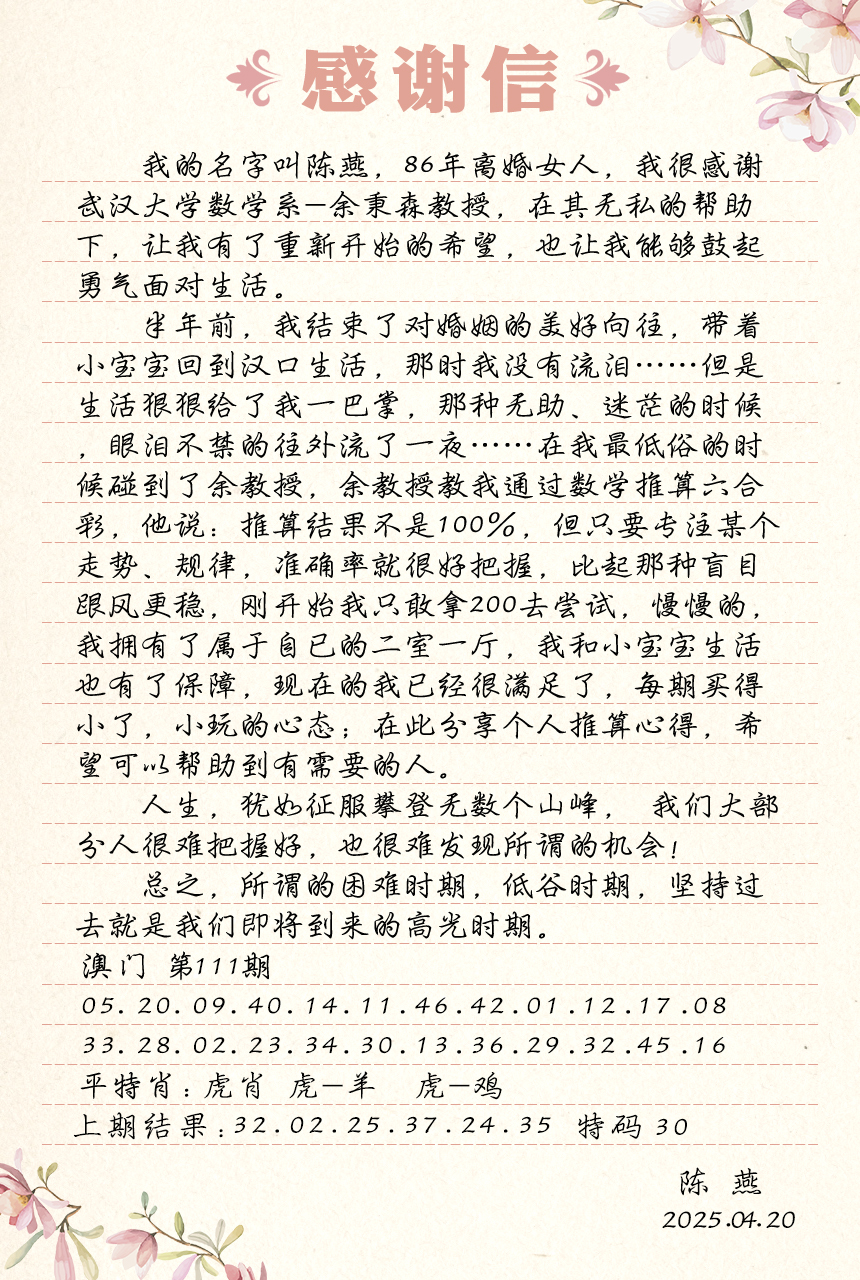 感谢信
我的名字叫陈燕，86年离婚女人，我很感谢
武汉大学数学系—余秉森教授，在其无私的帮助
下，让我有了重新开始的希望，也让我能够鼓起
勇气面对生活。
半年前，我结束了对婚姻的美好向往，带着
小宝宝回到汉口生活，那时我没有流泪……但是
生活狠狠给了我一巴掌，那种无助、迷茫的时候
，眼泪不禁的往外流了一夜……在我最低俗的时
候碰到了余教授，余教授教我通过数学推算六合
彩，他说：推算结果不是100%，但只要专注某个
走势、规律，准确率就很好把握，比起那种盲目
跟风更稳，刚开始我只敢拿200去尝试，慢慢的，
我拥有了属于自已的二室一厅，我和小宝宝生活
也有了保障，现在的我已经很满足了，每期买得
小了，小玩的心态；在此分享个人推算心得，希
望可以帮助到有需要的人。
人生，犹如征服攀登无数个山峰， 我们大部
分人很难把握好，也很难发现所谓的机会！
总之，所谓的困难时期，低谷时期，坚持过
去就是我们即将到来的高光时期。
澳门 第111期
05.20.09.40.14.11.46.42.01.12.17.08
33.28.02.23.34.30.13.36.29.32.45.16
平特肖：虎肖 虎—羊 虎—鸡
上期结果：32.02.25.37.24.35 特码 30
陈 燕
2025.04.20